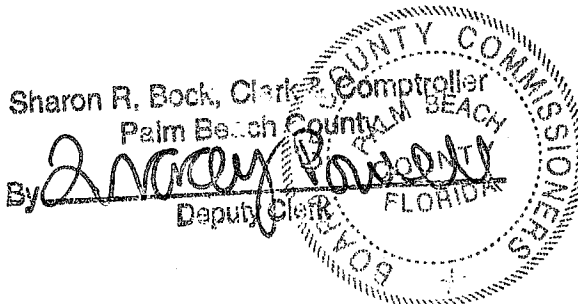 Sharon R. Bock, Clerk & Comptroller
Palm Beach County
By
Deputy Clerk
BOARD COUNTY COMMISSIONERS
PALM BEACH
COUNTY
FLORIDA